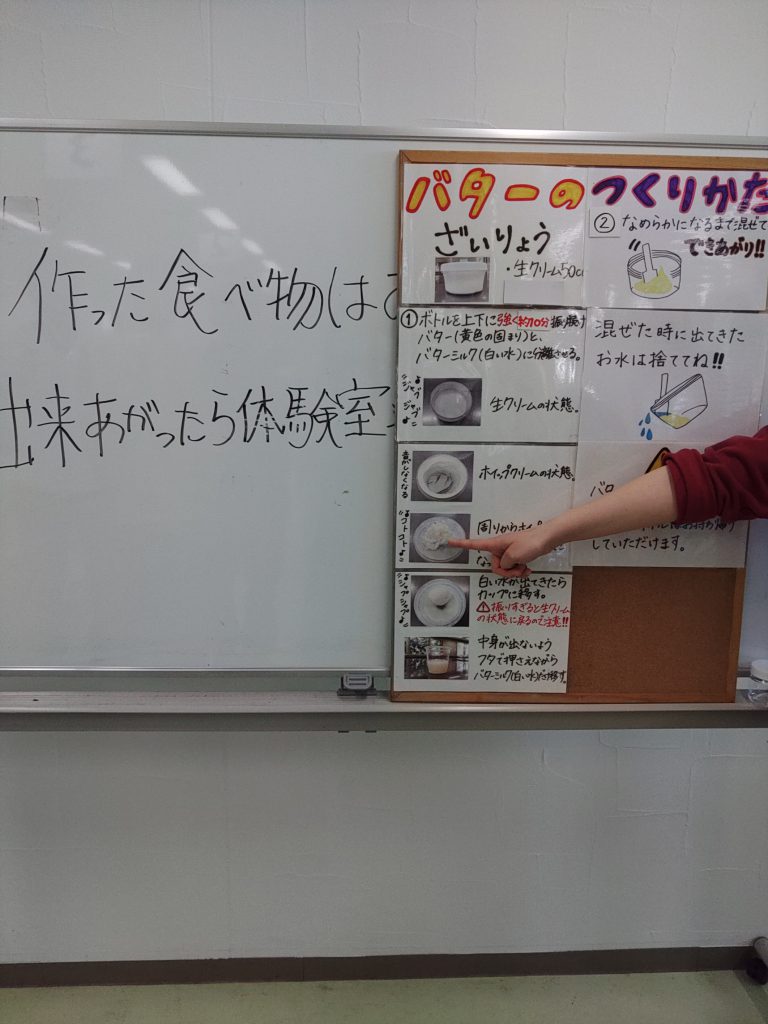 作った食べ物は
出来あがったら体験室
バターのつくりかた
ざいりょう
・生クリーム50cc
①ボトルを上下に強く約10分振り続け
バター(黄色の固まり)と、
バターミルク(白い水)に分離させる。
♪ジャブジャブ♪
生クリームの状態。
音がしなくなる
ホイップクリームの状態。
♪コトコト♪
周りから
♪ジャブジャブ♪
白い水が出てきたら
カップに移す。
⚠振りすぎると生クリーム
の状態に戻るので注意!!
中身が出ないよう
フタで押さえながら
バターミルク(白い水)だけ移す。
②なめらかになるまで混ぜて
できあがり!!
混ぜた時に出てきた
お水は捨ててね!!
バタ
していただけます。